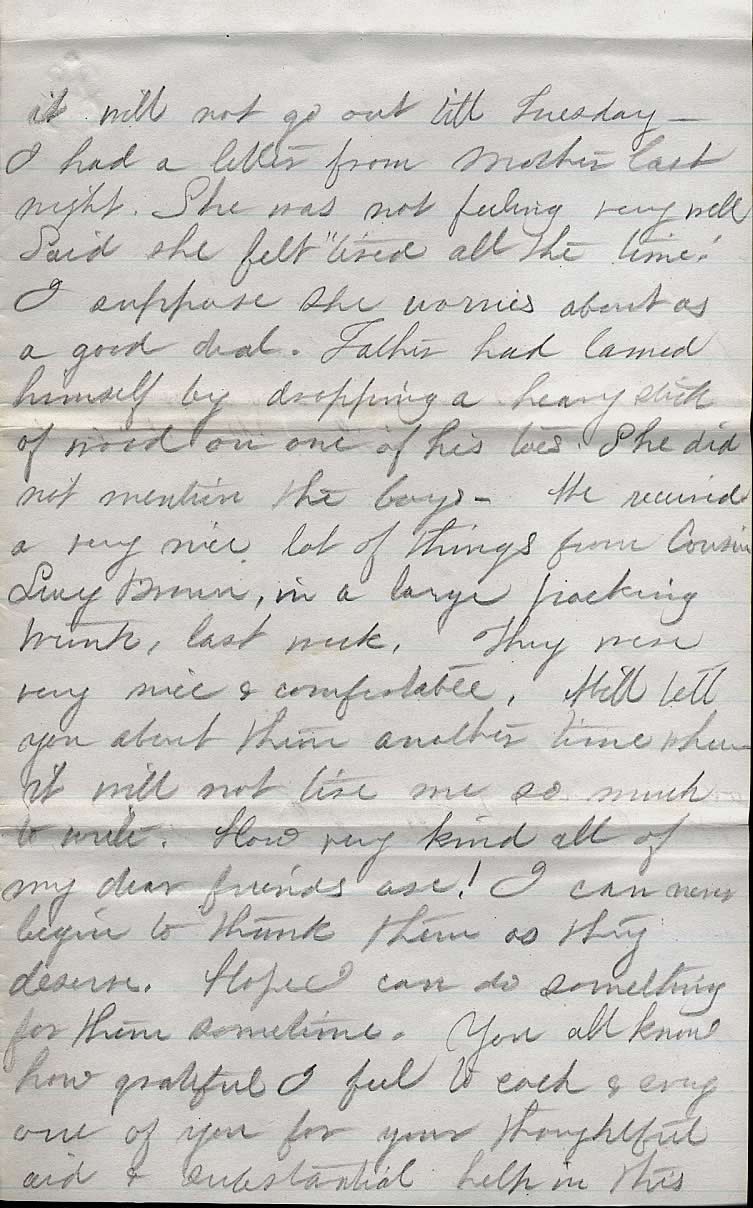 it will not go out till Tuesday —
I had a letter from Mother last
night. She was not feeling very well
Said she felt "tired all the time."
I suppose she worries about us
a good deal. Father had lamed
himself by dropping a heavy stick
of wood on one of his toes. She did
not mention the boys — We received
a very nice lot of things from Cousin
Lucy Brown, in a large packing
trunk, last week. They were
very nice & comfortable. Will tell
you about them another time when
it will not tire me so much
to write. How very kind all of
my dear friends are! I can never
begin to thank them as they
deserve. Hope I can do something
for them sometime. You all know
how grateful I feel to each & every
one of you for your thoughtful
aid & substantial help in this